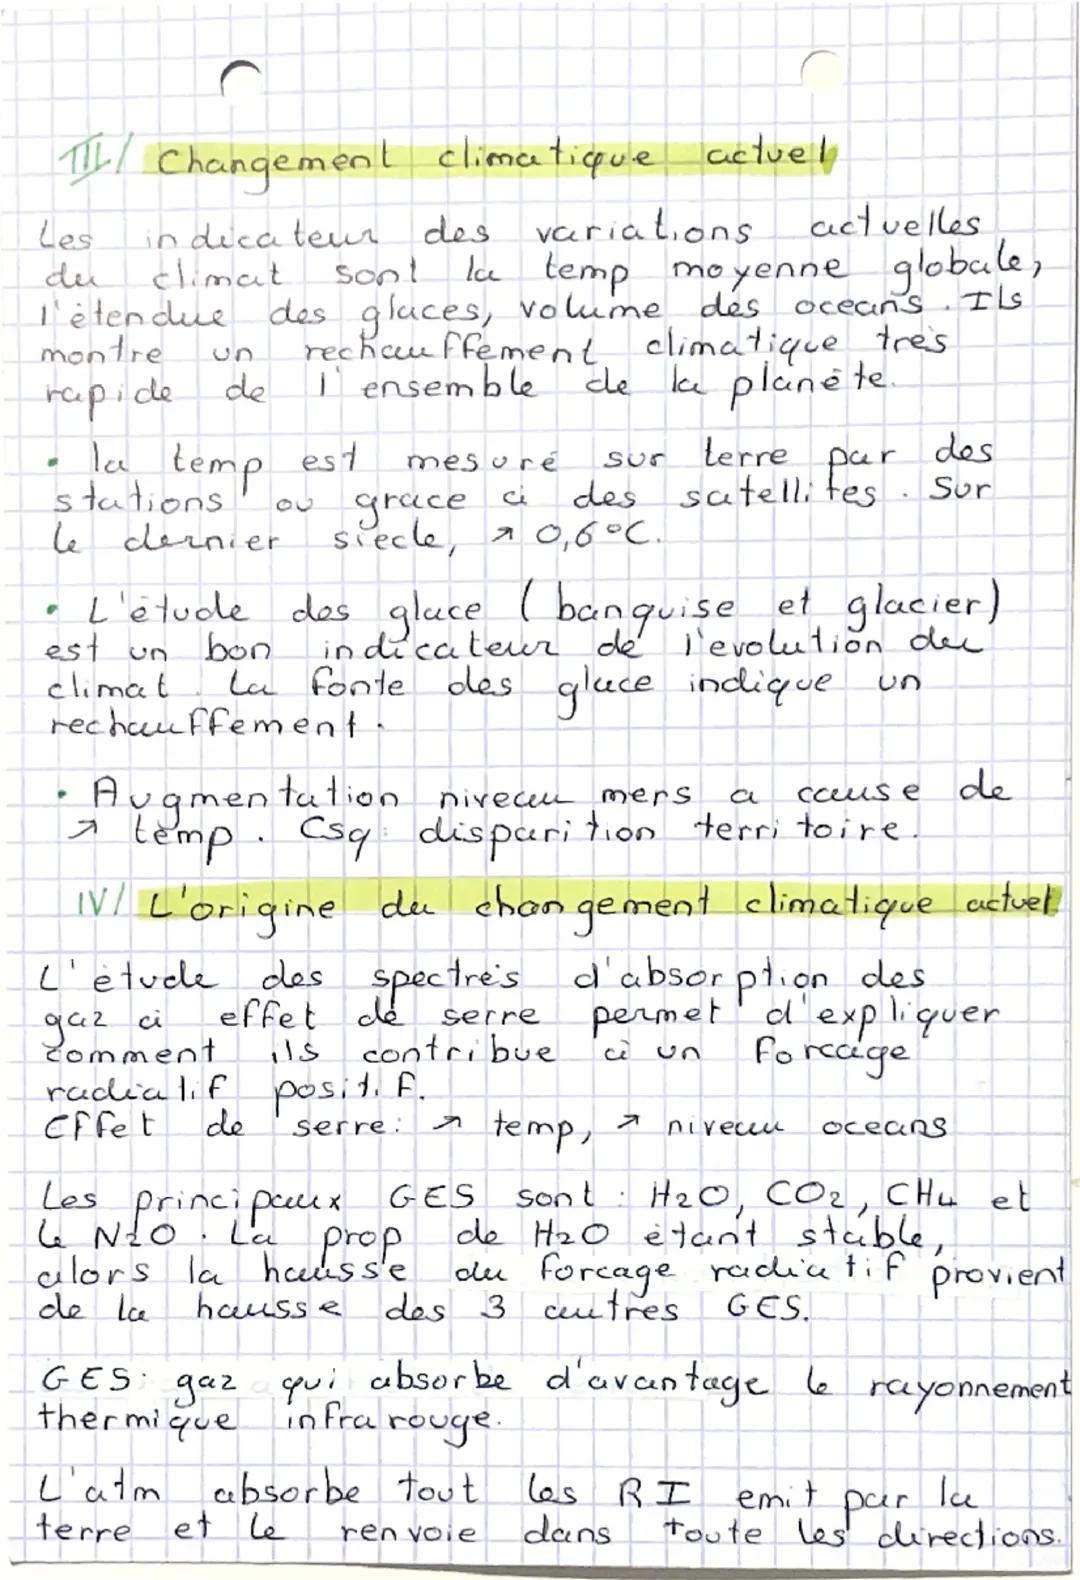 III/ Changement climatique actuel
Les indicateur des variations actuelles
du climat sont la temp moyenne globale,
l'étendue des glaces, volume des oceans. Ils
montre un rechauffement climatique très
rapide de l'ensemble de la planète.
• la temp est mesuré sur terre par des
stations ou grace à des satellites. Sur
le dernier siecle, ↗ 0,6°C.
• L'étude des glace (banquise et glacier)
est un bon indicateur de l'evolution du
climat. La fonte des glace indique un
rechauffement.
• Augmentation niveau mers a cause de
↗ temp. Csq: disparition territoire.
IV/ L'origine du changement climatique actuel
L'étude des spectres d'absorption des
gaz à effet de serre permet d'expliquer
comment ils contribue à un forcage
radiatif positif.
Effet de serre: ↗ temp, ↗ niveau oceans
Les principaux GES sont : H2O, CO2, CH4 et
le N2O. La prop de H2O étant stable,
alors la hausse du forcage radiatif provient
de la hausse des 3 autres GES.
GES: gaz qui absorbe d'avantage le rayonnement
thermique infrarouge.
L'atm absorbe tout les RI emit par la
terre et le renvoie dans toute les directions.